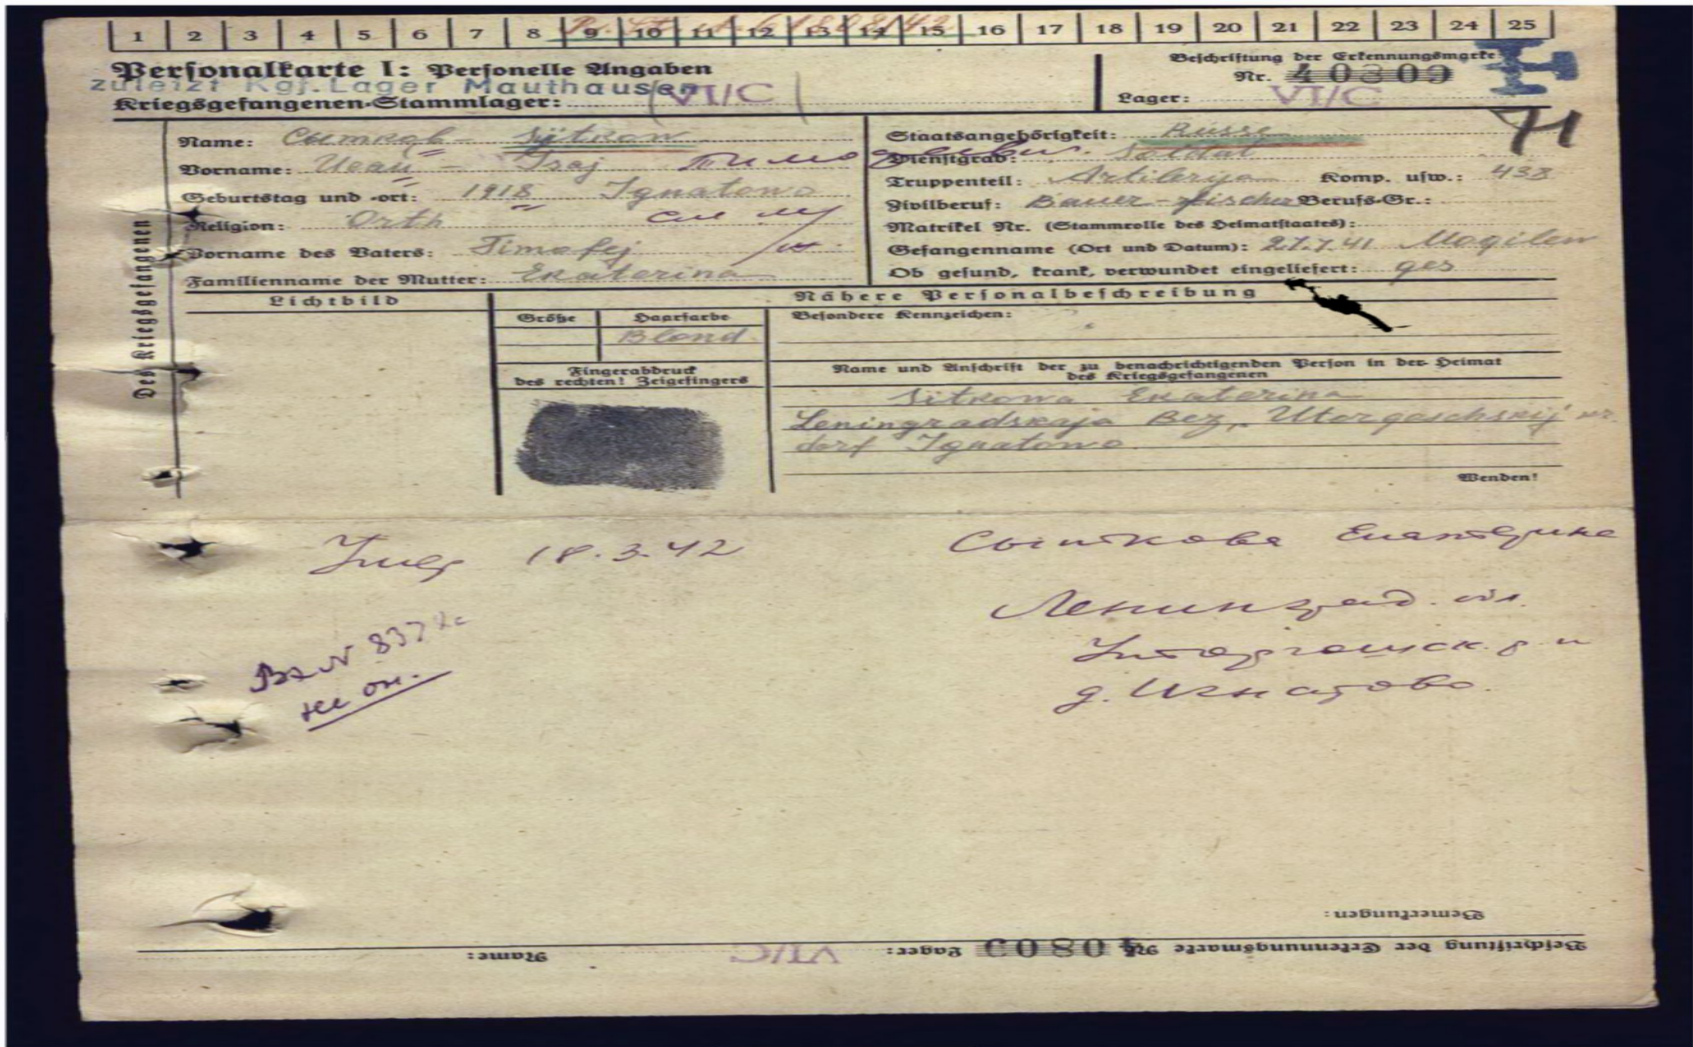 1 2 3 4 5 6 7 8 9 10 11 12 13 14 15 16 17 18 19 20 21 22 23 24 25
Personalkarte I: Personelle Angaben
zuletzt Kgf. Lager Mauthausen
Kriegsgefangenen-Stammlager: VI/C
Beschriftung der Erkennungsmarke
Nr. 40809
Lager: VI/C
Des Kriegsgefangenen
Name: Сытков - Sÿtkow
Vorname: Исай - Isaj Тимофеевич
Geburtstag und -ort: 1918 Ignatowo
Religion: Orth
Vorname des Vaters: Timofej
Familienname der Mutter: Ekaterina
Staatsangehörigkeit: Russe
Dienstgrad: Soldat
Truppenteil: Artilerija Komp. usw.: 438
Zivilberuf: Bauer - Fischer Berufs-Gr.:
Matrikel Nr. (Stammrolle des Heimatstaates):
Gefangenname (Ort und Datum): 27.7.41 Mogilew
Ob gesund, krank, verwundet eingeliefert: ges
Lichtbild
Nähere Personalbeschreibung
Größe Haarfarbe
Blond
Besondere Kennzeichen:
Fingerabdruck
des rechten! Zeigefingers
Name und Anschrift der zu benachrichtigenden Person in der Heimat
des Kriegsgefangenen
Sitkowa Ekaterina
Leningradskaja Bez. Utorgoschskij
dorf Ignatowo
Wenden!
Умер 18.3.42
Сыткова Екатерина
Ленинград. обл.
Уторгошск. р-н
д. Игнатово.
не он.
Bemerkungen:
Beschriftung der Erkennungsmarke Nr. 40809 Lager: VI/C Name: